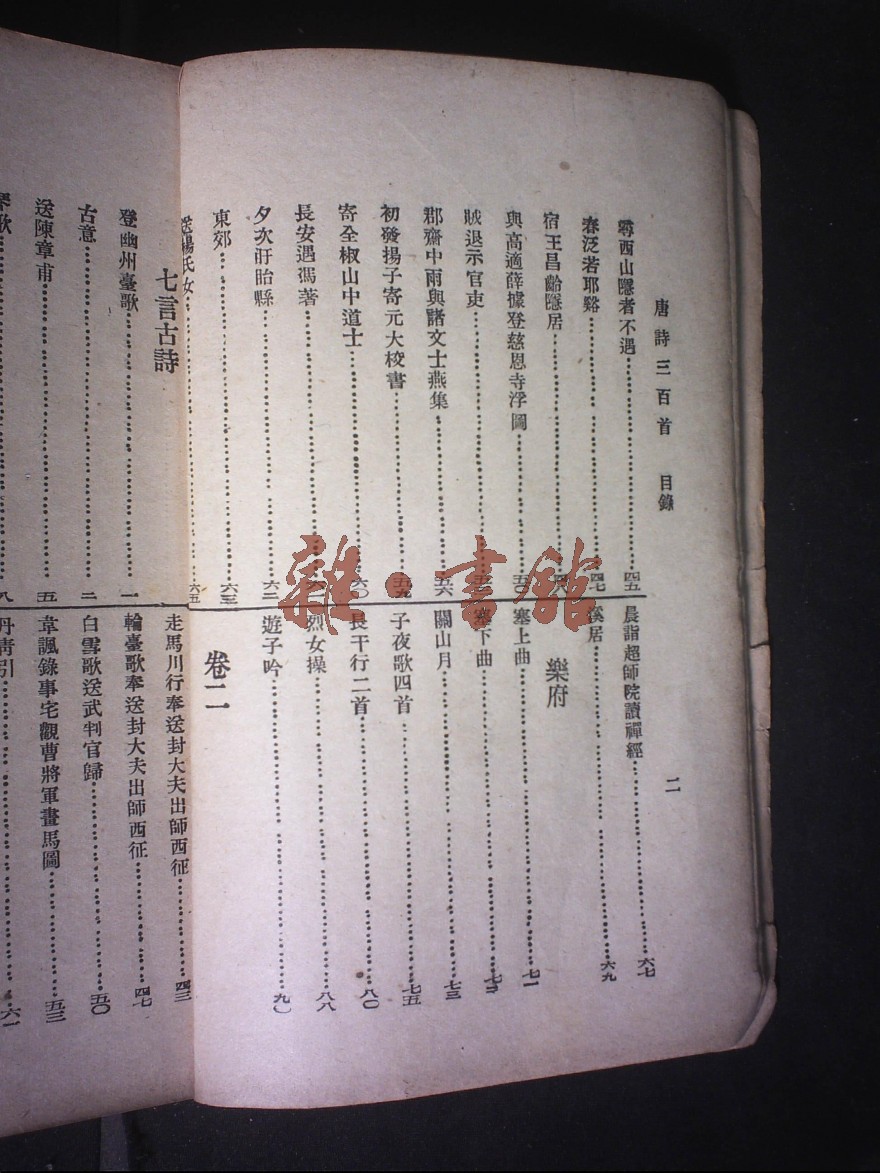 唐詩三百首 目錄
二
尋西山隱者不遇……四五
春泛若耶谿……四七
宿王昌齡隱居……四八
與高適薛據登慈恩寺浮圖……五〇
賊退示官吏
郡齋中雨與諸文士燕集……五六
初發揚子寄元大校書……五九
寄全椒山中道士……六〇
長安遇馮著
夕次盱眙縣……六二
東郊……六三
送楊氏女……六五
晨詣超師院讀禪經……六七
溪居……六九
樂府
塞上曲……七一
塞下曲……七二
關山月……七三
子夜歌四首……七五
長干行二首……八〇
烈女操……八八
遊子吟……九〇
卷二
七言古詩
登幽州臺歌……一
古意……二
送陳章甫……五
琴歌……八
走馬川行奉送封大夫出師西征……四三
輪臺歌奉送封大夫出師西征……四七
白雪歌送武判官歸……五〇
韋諷錄事宅觀曹將軍畫馬圖……五三
丹青引……六一
雜·書館